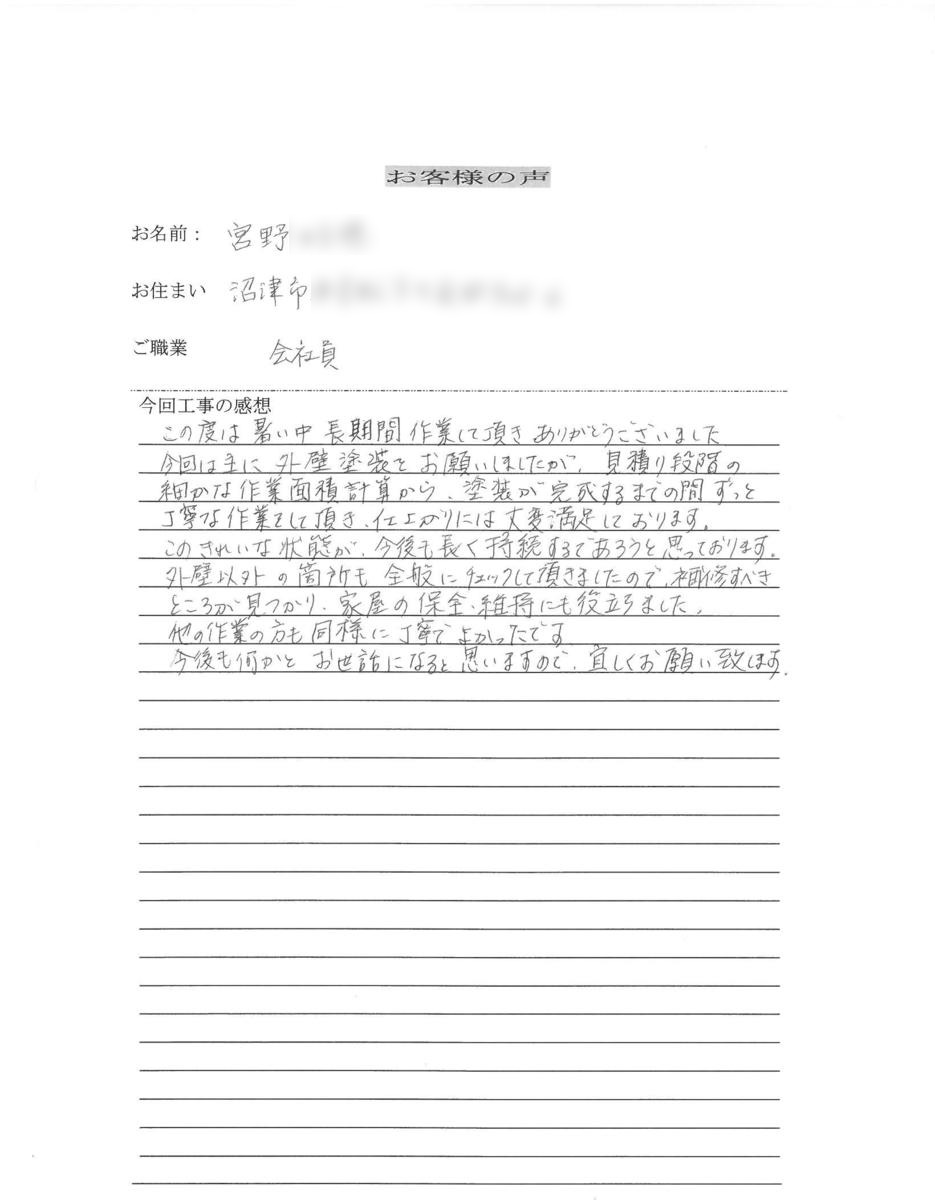 お客様の声
お名前： 宮野
お住まい 沼津市
ご職業 会社員
今回工事の感想
この度は暑い中長期間作業して頂きありがとうございました
今回は主に外壁塗装をお願いしましたが、見積り段階の
細かな作業面積計算から、塗装が完成するまでの間ずっと
丁寧な作業をして頂き、仕上がりには大変満足しております。
このきれいな状態が、今後も長く持続するであろうと思っております。
外壁以外の箇所も全般にチェックして頂きましたので、補修すべき
ところが見つかり、家屋の保全・維持にも役立ちました。
他の作業の方も同様に丁寧でよかったです
今後も何かとお世話になると思いますので、宜しくお願い致します.